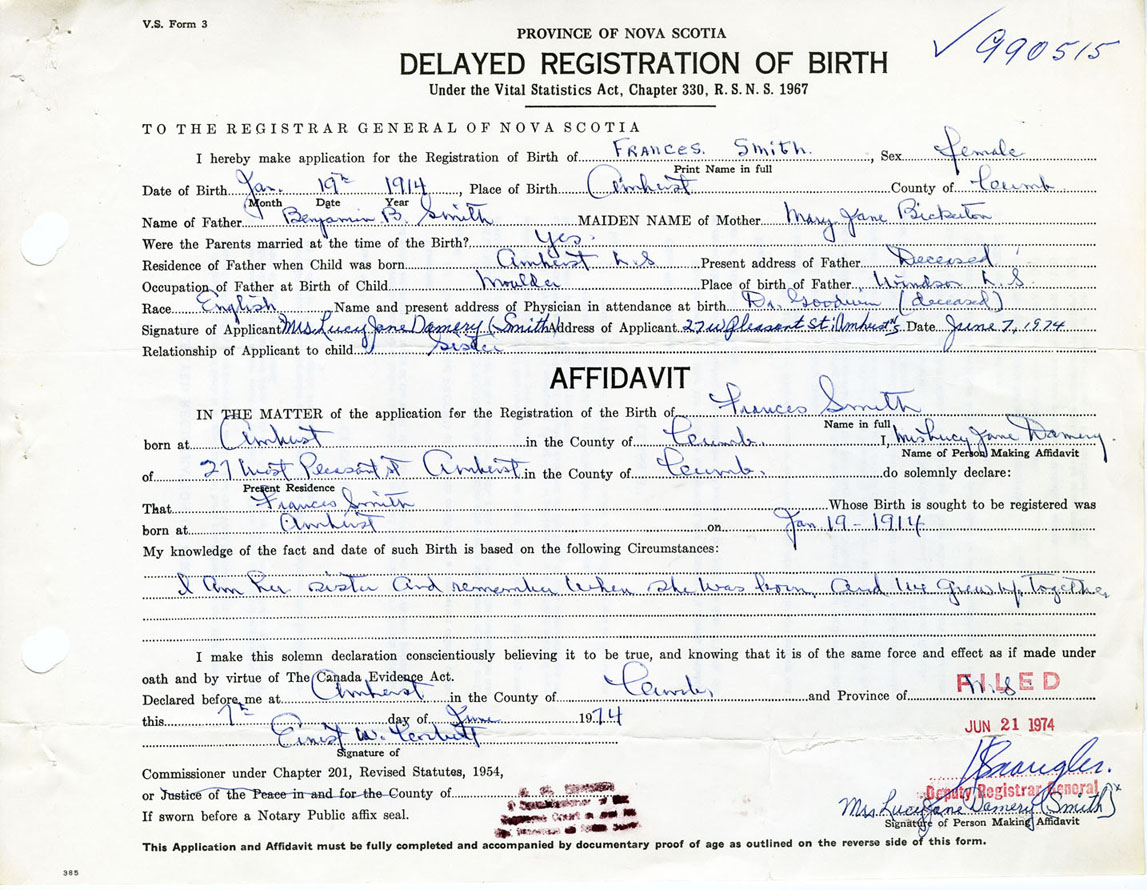 V.S. Form 3
PROVINCE OF NOVA SCOTIA
√ 990515
DELAYED REGISTRATION OF BIRTH
Under the Vital Statistics Act, Chapter 330, R. S. N. S. 1967
TO THE REGISTRAR GENERAL OF NOVA SCOTIA
I hereby make application for the Registration of Birth of FRANCES. Smith. , Sex female
Print Name in full
Date of Birth Jan. 19th 1914 , Place of Birth Amherst County of Cumb.
Month Date Year
Name of Father Benjamin B. Smith MAIDEN NAME of Mother Mary Jane Bickerton
Were the Parents married at the time of the Birth? Yes.
Residence of Father when Child was born Amherst N.S Present address of Father Deceased
Occupation of Father at Birth of Child Moulder Place of birth of Father Windsor N.S.
Race English Name and present address of Physician in attendance at birth Dr. Goodwin (deceased)
Signature of Applicant Mrs. Lucy Jane Damery (Smith Address of Applicant 27 W Pleasant St. Amherst N.S. Date June 7, 1974
Relationship of Applicant to child Sister
AFFIDAVIT
IN THE MATTER of the application for the Registration of the Birth of Frances Smith
Name in full
born at Amherst in the County of Cumb. I, Mrs Lucy Jane Damery.
Name of Person Making Affidavit
of 27 West Pleasant St Amherst in the County of Cumb. do solemnly declare:
Present Residence
That Frances Smith Whose Birth is sought to be registered was
born at Amherst on Jan. 19 - 1914
My knowledge of the fact and date of such Birth is based on the following Circumstances:
I Am her sister And remember When she was born, And We grew up Together
I make this solemn declaration conscientiously believing it to be true, and knowing that it is of the same force and effect as if made under
oath and by virtue of The Canada Evidence Act.
Declared before me at Amherst in the County of Cumb. and Province of N.S FILED
this 7th day of June 1974
JUN 21 1974
Ernest W.
Signature of
Commissioner under Chapter 201, Revised Statutes, 1954,
or Justice of the Peace in and for the County of
Deputy Registrar General
Mrs. Lucy Jane Damery (Smith)
If sworn before a Notary Public affix seal.
Signature of Person Making Affidavit
This Application and Affidavit must be fully completed and accompanied by documentary proof of age as outlined on the reverse side of this form.
385